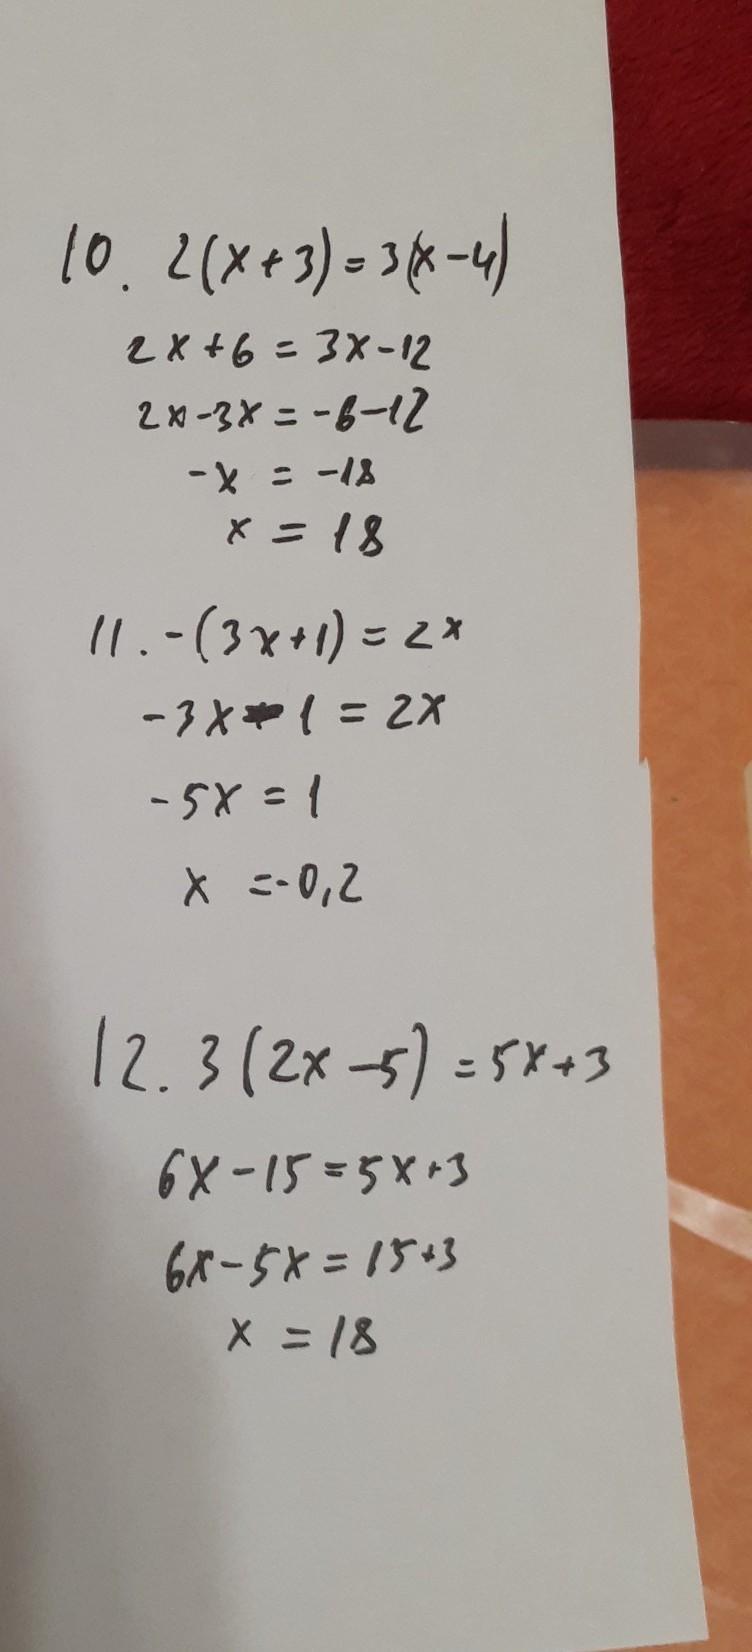 10. 2(x+3)=3(x-4)
2x+6=3x-12
2x-3x=-6-12
-x=-18
x=18
11. -(3x+1)=2x
-3x-1=2x
-5x=1
x=-0,2
12. 3(2x-5)=5x+3
6x-15=5x+3
6x-5x=15+3
x=18